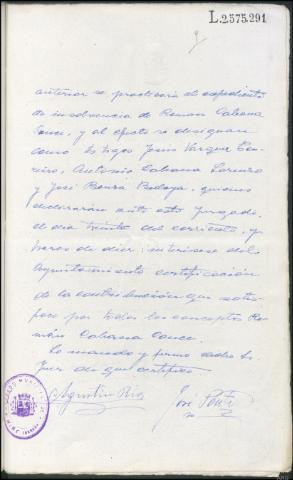 L.2575.291
anterior se practicará el expediente
de insolvencia de Ramón Cabana
Couce, y al efecto se designan
como testigos Jesús Vázquez
Antonio Cabana Lorenzo
y José Bouza quienes
declararán ante este Juzgado,
el dia treinta del corriente, y
horas de diez; interesese del
Ayuntamiento certificación
de la contribución que satis-
face por todos los conceptos Ra-
món Cabana Couce.
Lo mandó y firma dicho Sr.
Juez de que certifico.
Agustín Ríos
José